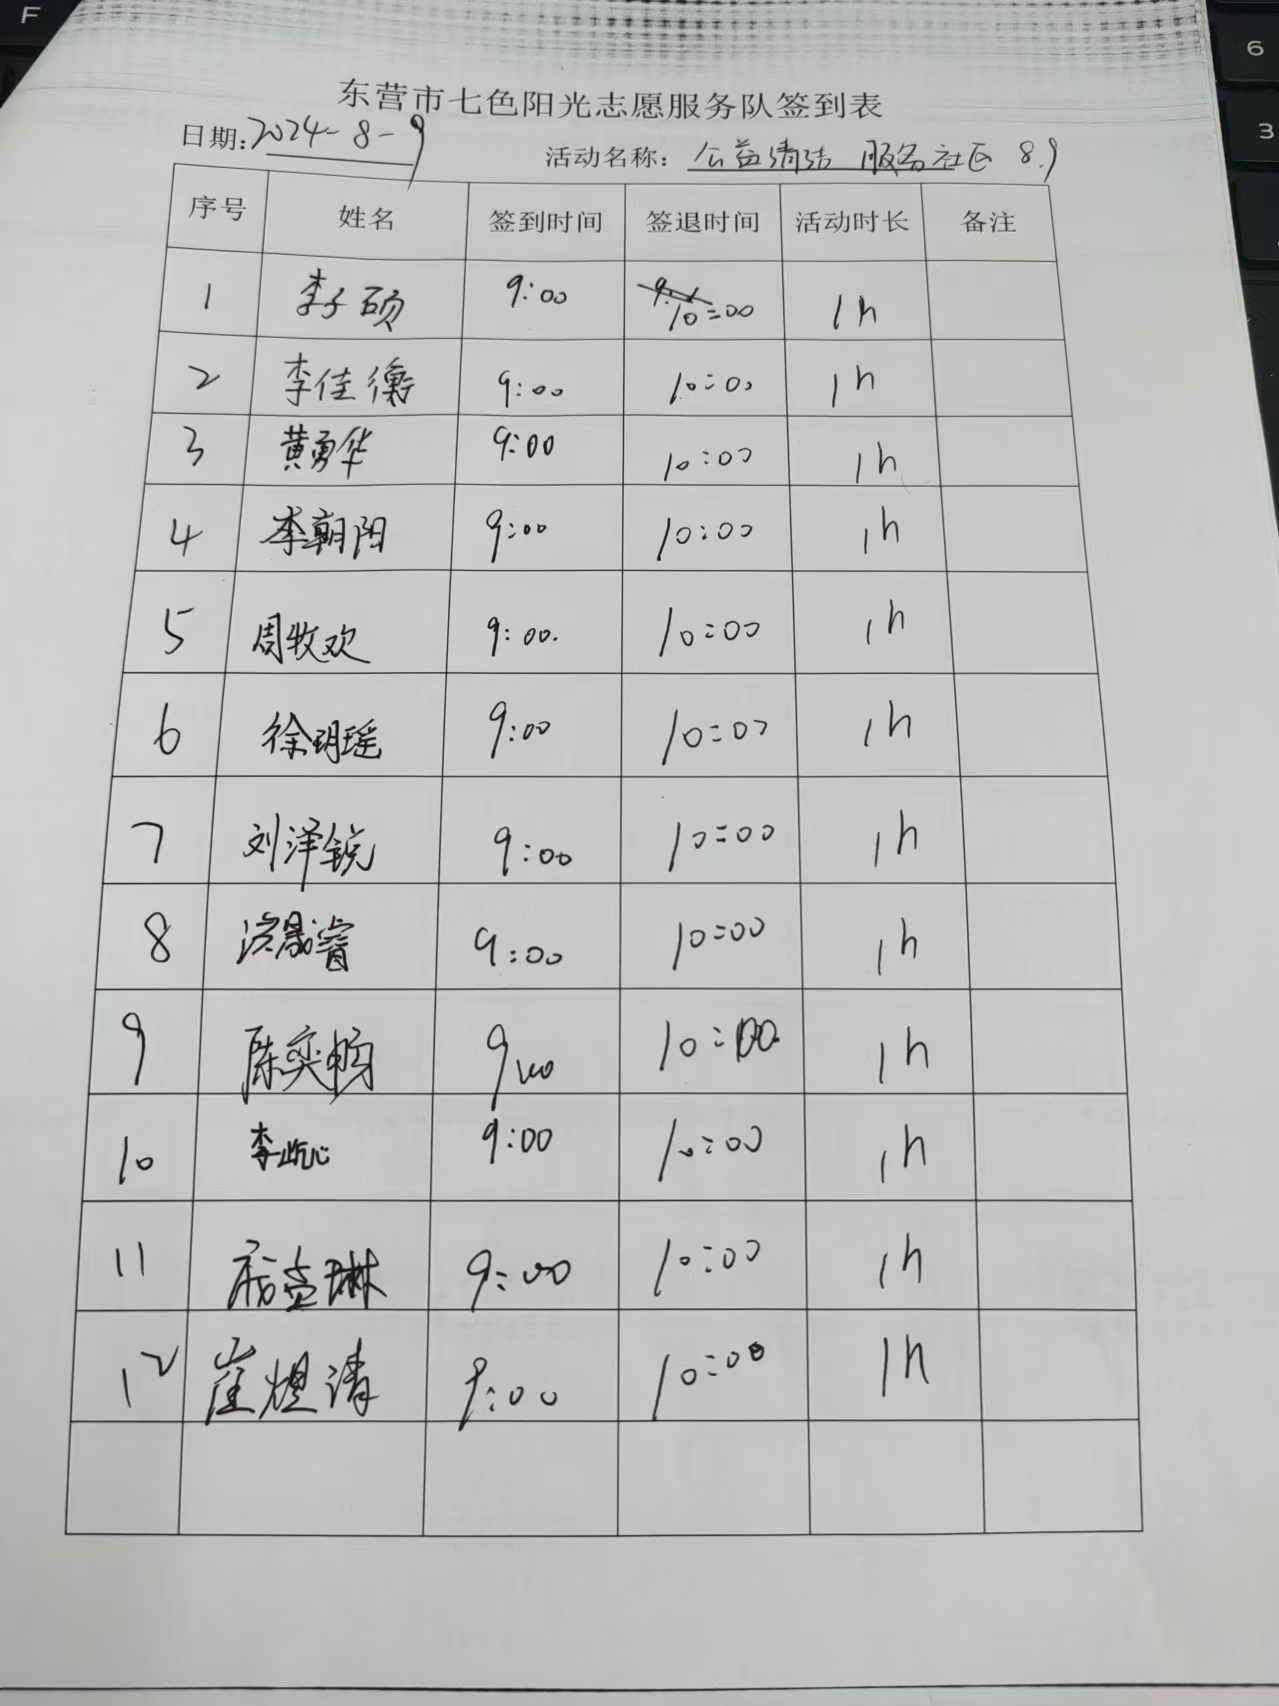 东营市七色阳光志愿服务队签到表
日期: 2024-8-9 活动名称: 公益清洁 服务社区 8.9
序号 姓名 签到时间 签退时间 活动时长 备注
1 李子硕 9:00 10:00 1h
2 李佳衡 9:00 10:00 1h
3 黄勇华 9:00 10:00 1h
4 李朝阳 9:00 10:00 1h
5 周牧欢 9:00. 10:00 1h
6 徐玥瑶 9:00 10:00 1h
7 刘泽锐 9:00 10:00 1h
8 洪晟睿 9:00 10:00 1h
9 陈奕畅 9:00 10:00 1h
10 李 9:00 10:00 1h
11 琳 9:00 10:00 1h
12 崔煜清 9:00 10:00 1h
F
6
3